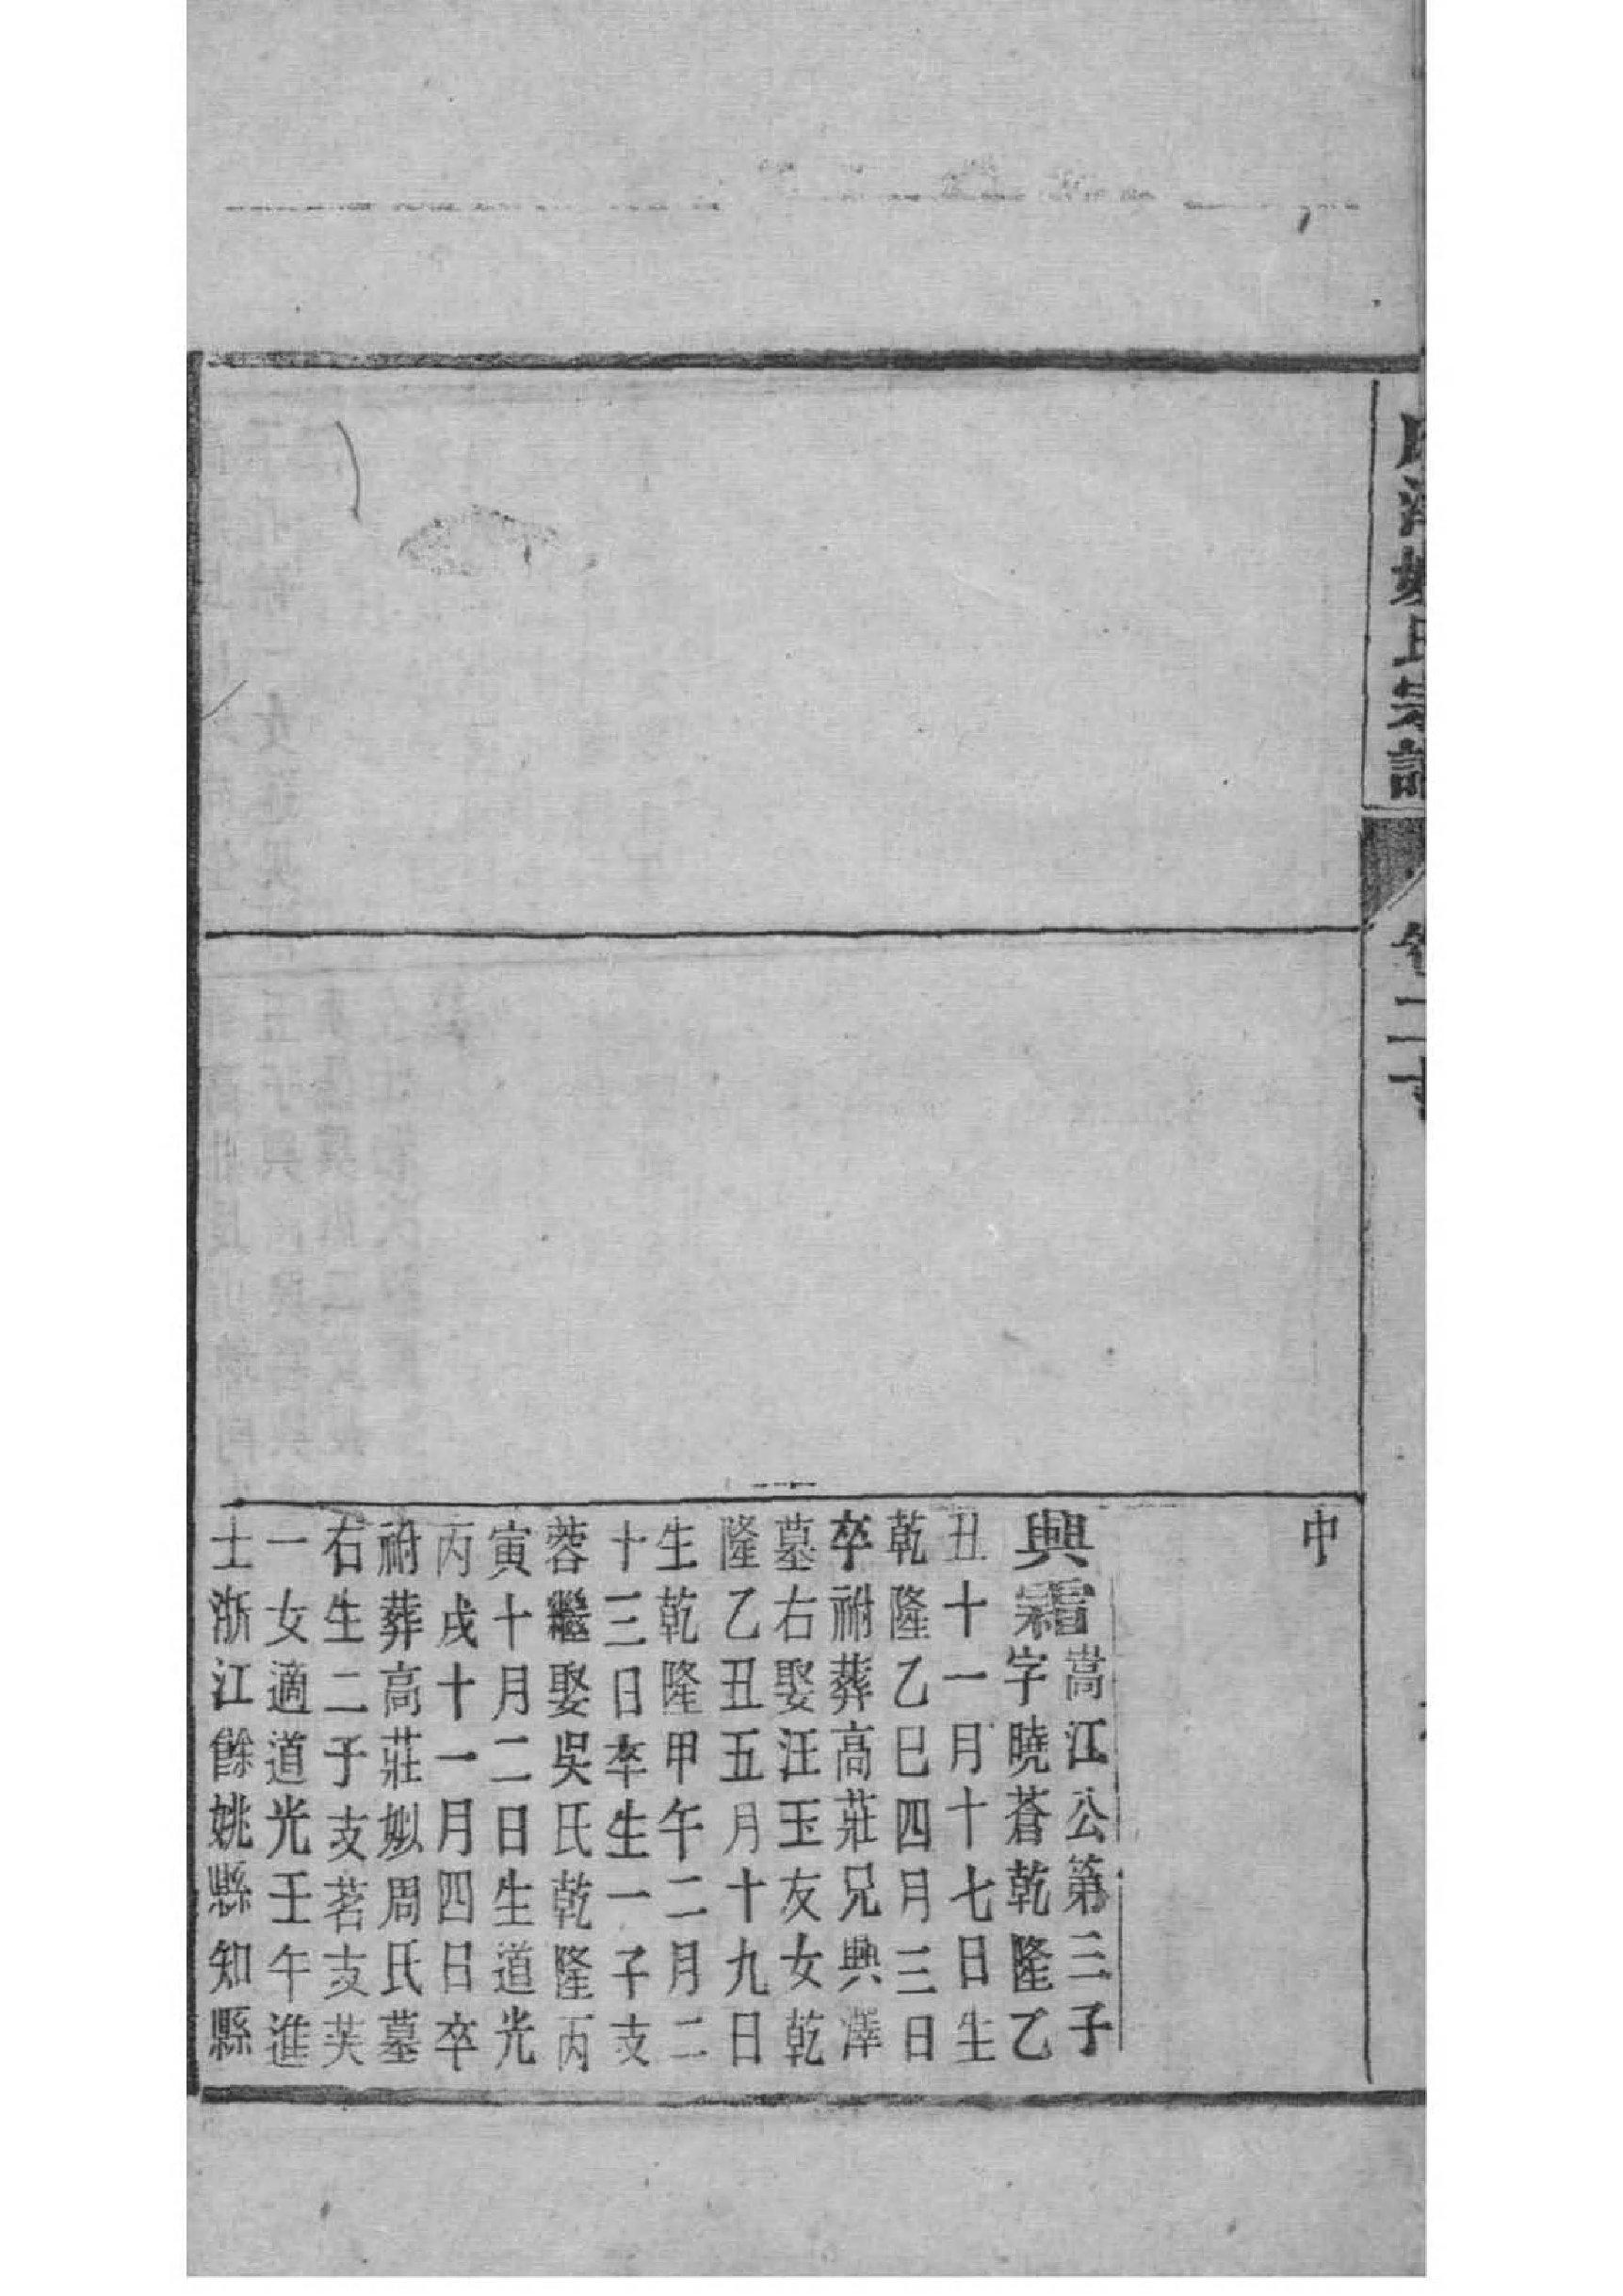 麻溪姚氏宗譜
卷二十
中
興
嵩江公第三子
字曉蒼乾隆乙
丑十一月十七日生
乾隆乙巳四月三日
卒祔葬高莊兄興澤
墓右娶汪玉友女乾
隆乙丑五月十九日
生乾隆甲午二月二
十三日卒生一子支
蓉繼娶吳氏乾隆丙
寅十月二日生道光
丙戌十一月四日卒
祔葬高莊姒周氏墓
右生二子支茗支芙
一女適道光壬午進
士浙江餘姚縣知縣